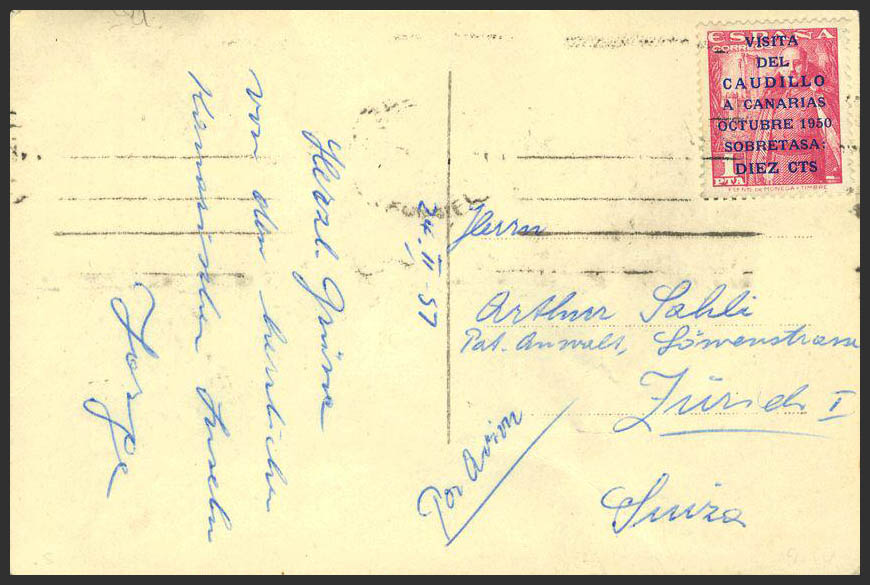 ESPAÑA
CORREOS
VISITA
DEL
CAUDILLO
A CANARIAS
OCTUBRE 1950
SOBRETASA:
DIEZ CTS
1
PTA
24. II 57
Herzl. Grüsse
von den herrlichen
Kanarischen Inseln
Jorge
Herrn
Arthur Sahli
Pat. Anwalt, Löwenstrasse
Zürich I
Suiza
Por Avion